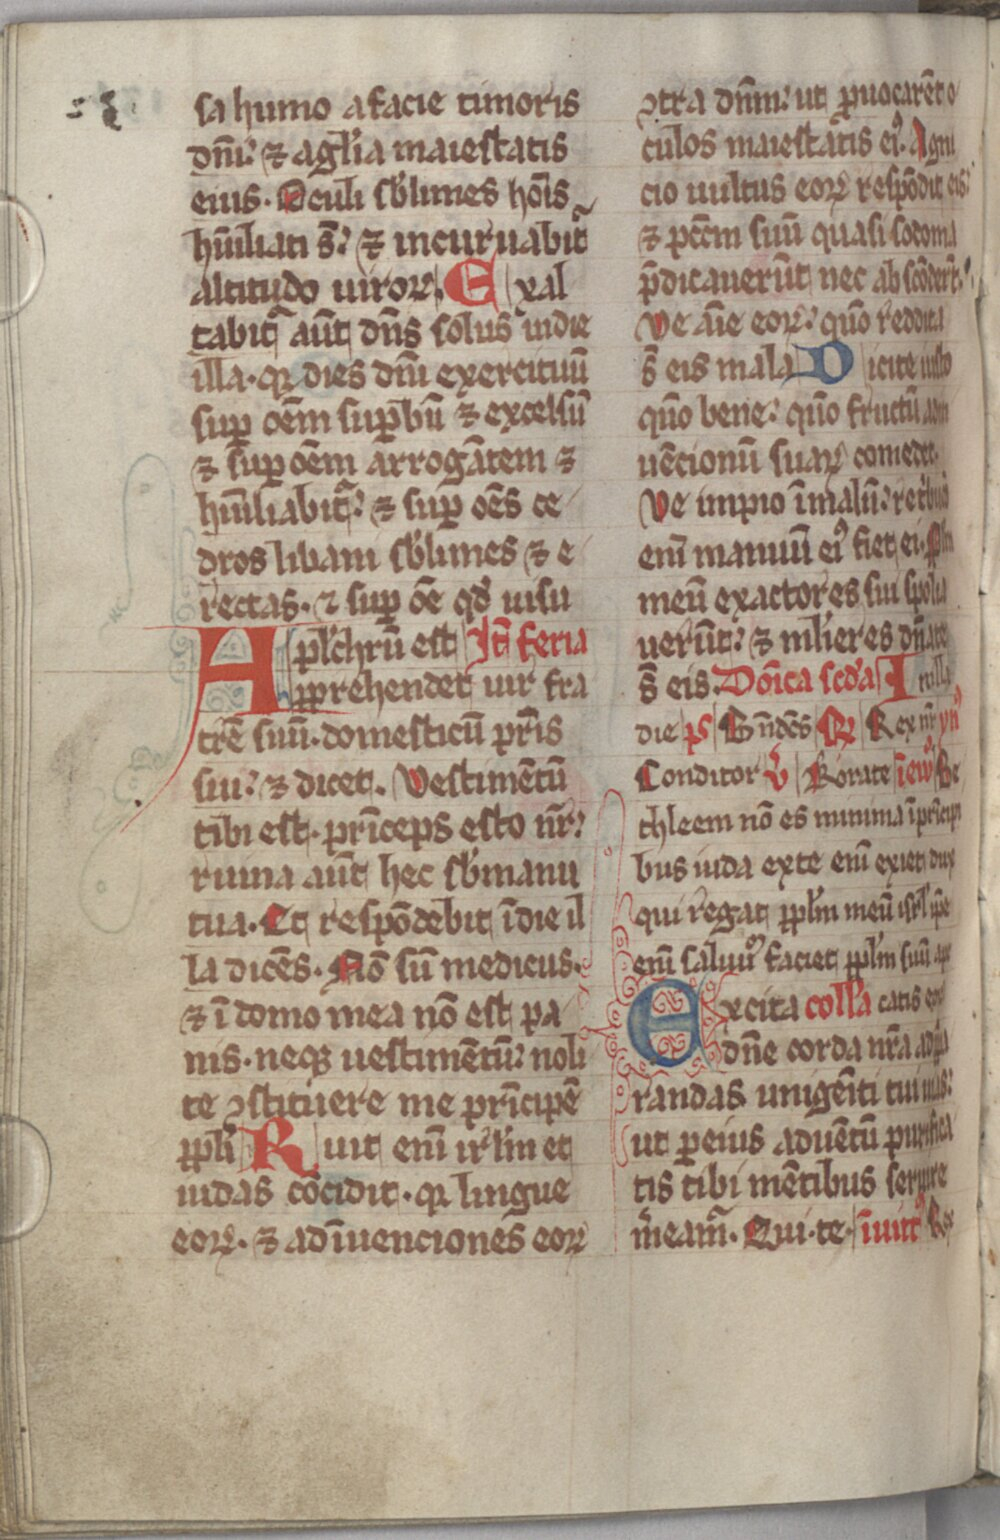 sa humo a facie timoris
dñi: ⁊ a gl̃ia maiestatis
eius. Oculi sb̓limes hoĩs
hũiliati s̃: ⁊ incuruabit᷑
altitudo uiroꝝ. Exal
tabit᷑ aũt dñs solus in die
illa. qꝛ dies dñi exercituũ
suꝑ oẽm suꝑbũ ⁊ excelsũ
⁊ suꝑ oẽm arrogãtem ⁊
hũiliabit᷑: ⁊ suꝑ oẽs ce
dros libani sb̓limes ⁊ e
rectas. ⁊ suꝑ oẽ qď uisu
pl̓chrũ est It̃ feria
Apprehendet uir fra
trẽ suũ. domesticũ pr̃is
sui: ⁊ dicet. Vestimẽtũ
tibi est. prĩceps esto nr̃:
ruina aũt hec sb̓ manu
tua. Et respõdebit ĩ die il
la dicẽs. Nõ sũ medicus.
⁊ ĩ domo mea nõ est pa
nis. neqꝫ uestimẽtũ: noli
te ꝯstituere me prĩcipẽ
ppl̓i Ruit enĩ ir̓lm et
iudas cõcidit. qꝛ lingue
eoꝝ. ⁊ adĩuenciones eoꝝ
ꝯtra dñm: ut ꝓuocarẽt o
culos maiestatis eiꝰ. Agni
cio uultus eoꝝ respõdit eis:
⁊ pcc̃m suũ quasi sodoma
p̃dicauerũt nec abscõderũt:
Ve aĩe eoꝝ: qũo reddita
s̃ eis mala Dicite iusto
qũo bene: qũo fructũ adin
uẽcionũ suaꝝ comedet.
Ve impio ĩ malũ: ret̓bucio
enĩ manuũ eiꝰ fiet ei. ppl̓m
meũ exactores sui spolia
uerũt: ⁊ ml̓ieres dñate
s̃ eis. Dõica scďa In illa
die ps Bñdc̃s R̷ Rex nr̃ ymꝰ
Conditor v̓ Rorate ĩ ewꝰ Be
thleem nõ es minima ĩ prĩcipi
bus iuda ex te enĩ exiet dux
qui regat ppl̓m meũ isrl̓ ip̃e
enĩ saluũ faciet ppl̓m suũ a pec
Excita coll̓a catis eoꝝ
dñe corda nr̃a ad p̃pa
randas unigẽiti tui uias:
ut ꝑ eius aduẽtũ purifica
tis tibi mẽtibus seruire
m̓eam᷑. Qui te. ĩuit Rex